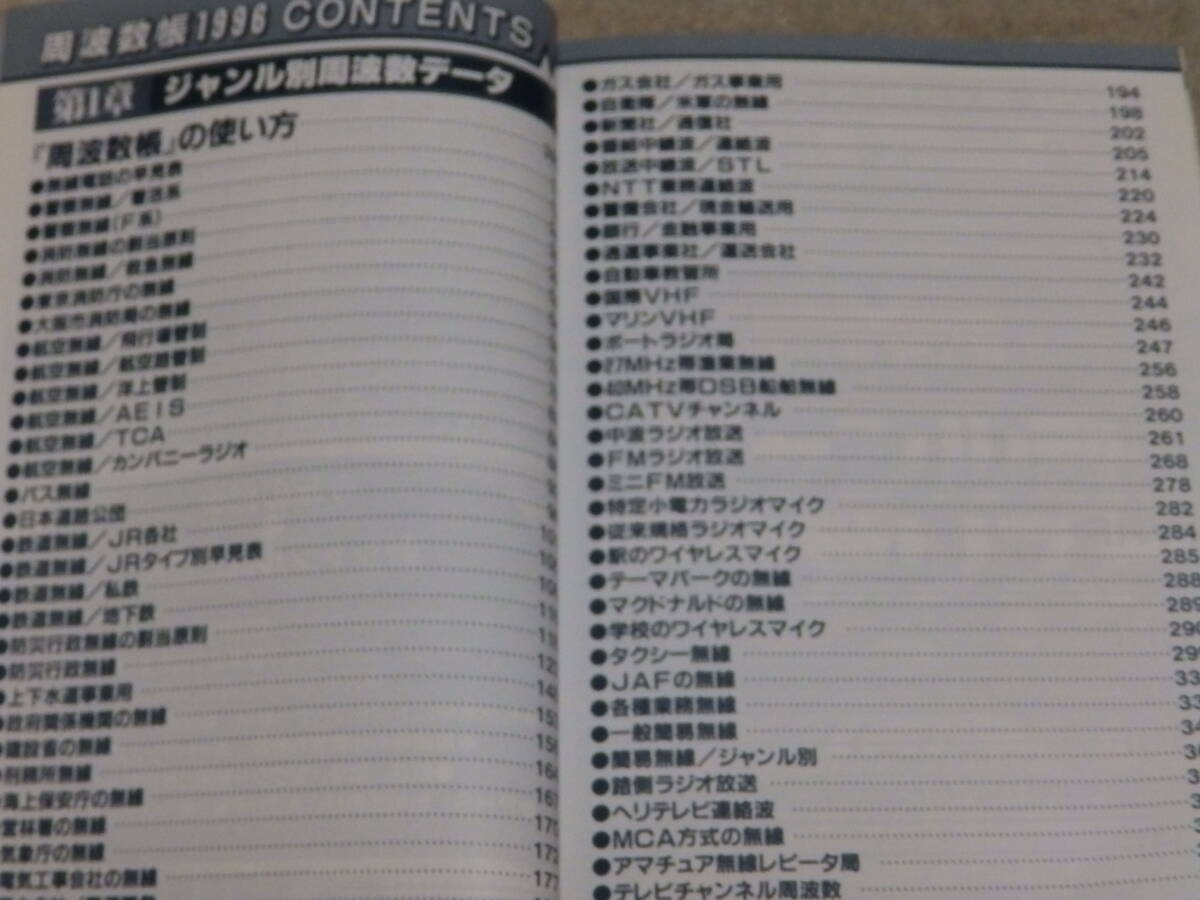 周波数帳1996 CONTENTS
第1章 ジャンル別周波数データ
『周波数帳』の使い方
●無線電話の早見表
●警察無線/署活系
●警察無線(F系)
●消防無線の割当原則
●消防無線/救急無線
●東京消防庁の無線
●大阪市消防局の無線
●航空無線/飛行場管制
●航空無線/航空路管制
●航空無線/洋上管制
●航空無線/AEIS
●航空無線/TCA
●航空無線/カンパニーラジオ
●バス無線
●日本道路公団
●鉄道無線/JR各社
●鉄道無線/JRタイプ別早見表
●鉄道無線/私鉄
●鉄道無線/地下鉄
●防災行政無線の割当原則
●防災行政無線
●上下水道事業用
●政府関係機関の無線
●建設省の無線
●刑務所無線
●海上保安庁の無線
営林署の無線
気象庁の無線
電気工事会社の無線
●ガス会社/ガス事業用 194
●自衛隊/米軍の無線 198
●新聞社/通信社 202
●番組中継波/連絡波 205
●放送中継波/STL 214
●NTT業務連絡波 220
●警備会社/現金輸送用 224
●銀行/金融事業用 230
●通運事業社/運送会社 232
●自動車教習所 242
●国際VHF 244
●マリンVHF 246
●ポートラジオ局 247
●27MHz帯漁業無線 256
●40MHz帯DSB船舶無線 258
●CATVチャンネル 260
●中波ラジオ放送 261
●FMラジオ放送 268
●ミニFM放送 278
●特定小電力ラジオマイク 282
●従来規格ラジオマイク 284
●駅のワイヤレスマイク 285
●テーマパークの無線 288
●マクドナルドの無線
●学校のワイヤレスマイク
●タクシー無線
●JAFの無線
●各種業務無線
●一般簡易無線
●簡易無線/ジャンル別
●路側ラジオ放送
●ヘリテレビ連絡波
●MCA方式の無線
●アマチュア無線レピータ局
●テレビチャンネル周波数